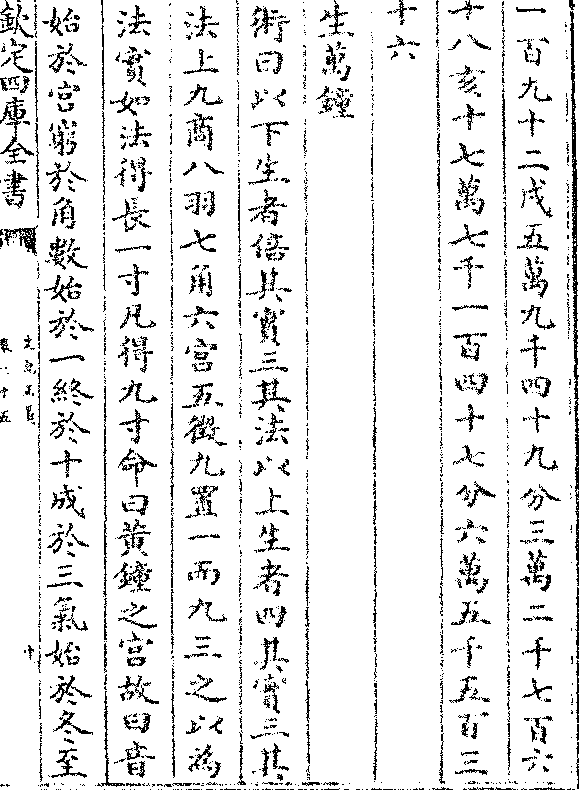 一百九十二戌五萬九千四十九分三萬二千七百六
十八亥十七萬七千一百四十七分六萬五千五百三
十六
生萬鐘
術曰以下生者倍其實三其法以上生者四其實三其
法上九商八羽七角六宮五徵九置一而九三之以為
法實如法得長一寸凡得九寸命曰黃鐘之宮故曰音
始於宮窮於角數始於一終於十成於三氣始於冬至
欽定四庫全書
十